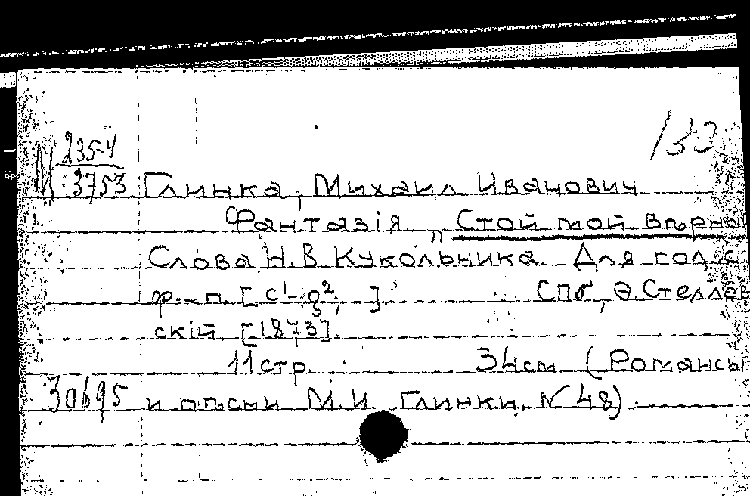 132
М 235-4
3753 Глинка, Михаил Иванович
Фантазія „Стой мой вѣрны
Слова Н.В. Кукольника. Для гол. с
ф.-п. [c¹-g², ] СПб, Ө. Стеллов
скій [1873].
11 стр. 34 см (Романсы
30695 и пѣсни М.И. Глинки, № 48).